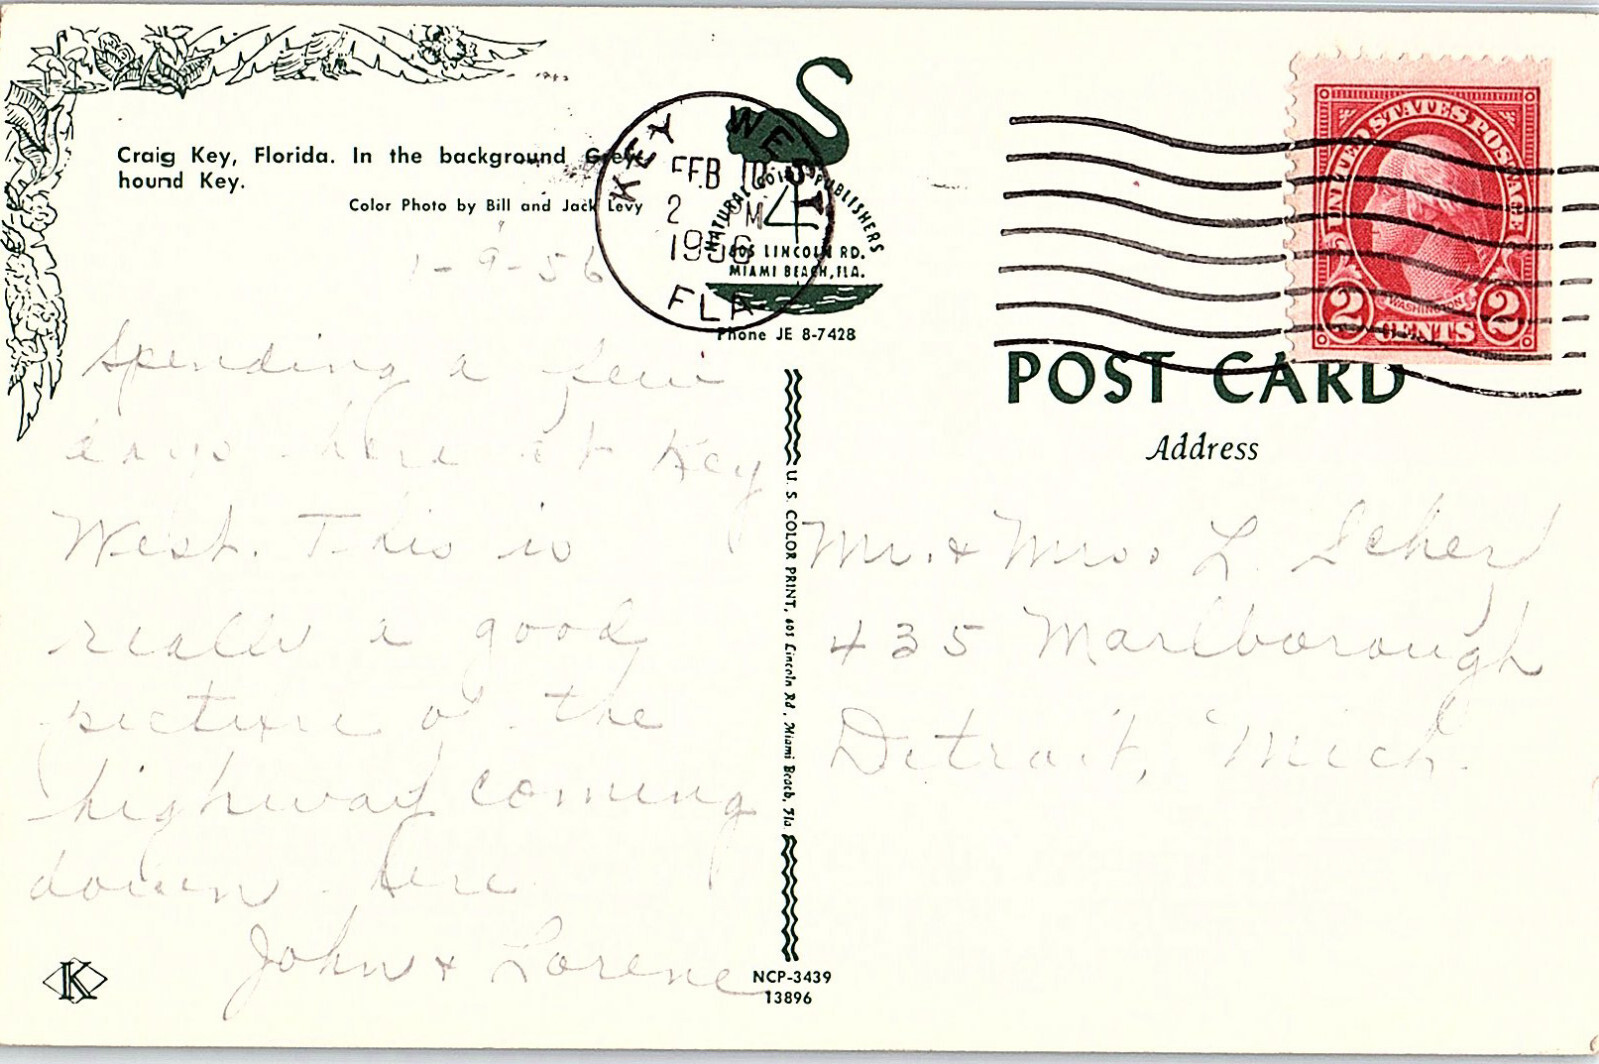 Craig Key, Florida. In the background Grey-
hound Key.
Color Photo by Bill and Jack Levy
1-9-56
Spending a few
days here at Key
West. This is
really a good
picture of the
highway coming
down here
John & Lorene
K
KEY WEST
FEB 10
2 PM
1956
FLA
NATURAL COLOR PUBLISHERS
605 LINCOLN RD.
MIAMI BEACH, FLA.
Phone JE 8-7428
U. S. COLOR PRINT, 605 Lincoln Rd., Miami Beach, Fla.
NCP-3439
13896
UNITED STATES POSTAGE
WASHINGTON
2 CENTS 2
POST CARD
Address
Mr. & Mrs. L. Scherf
435 Marlborough
Detroit, Mich.